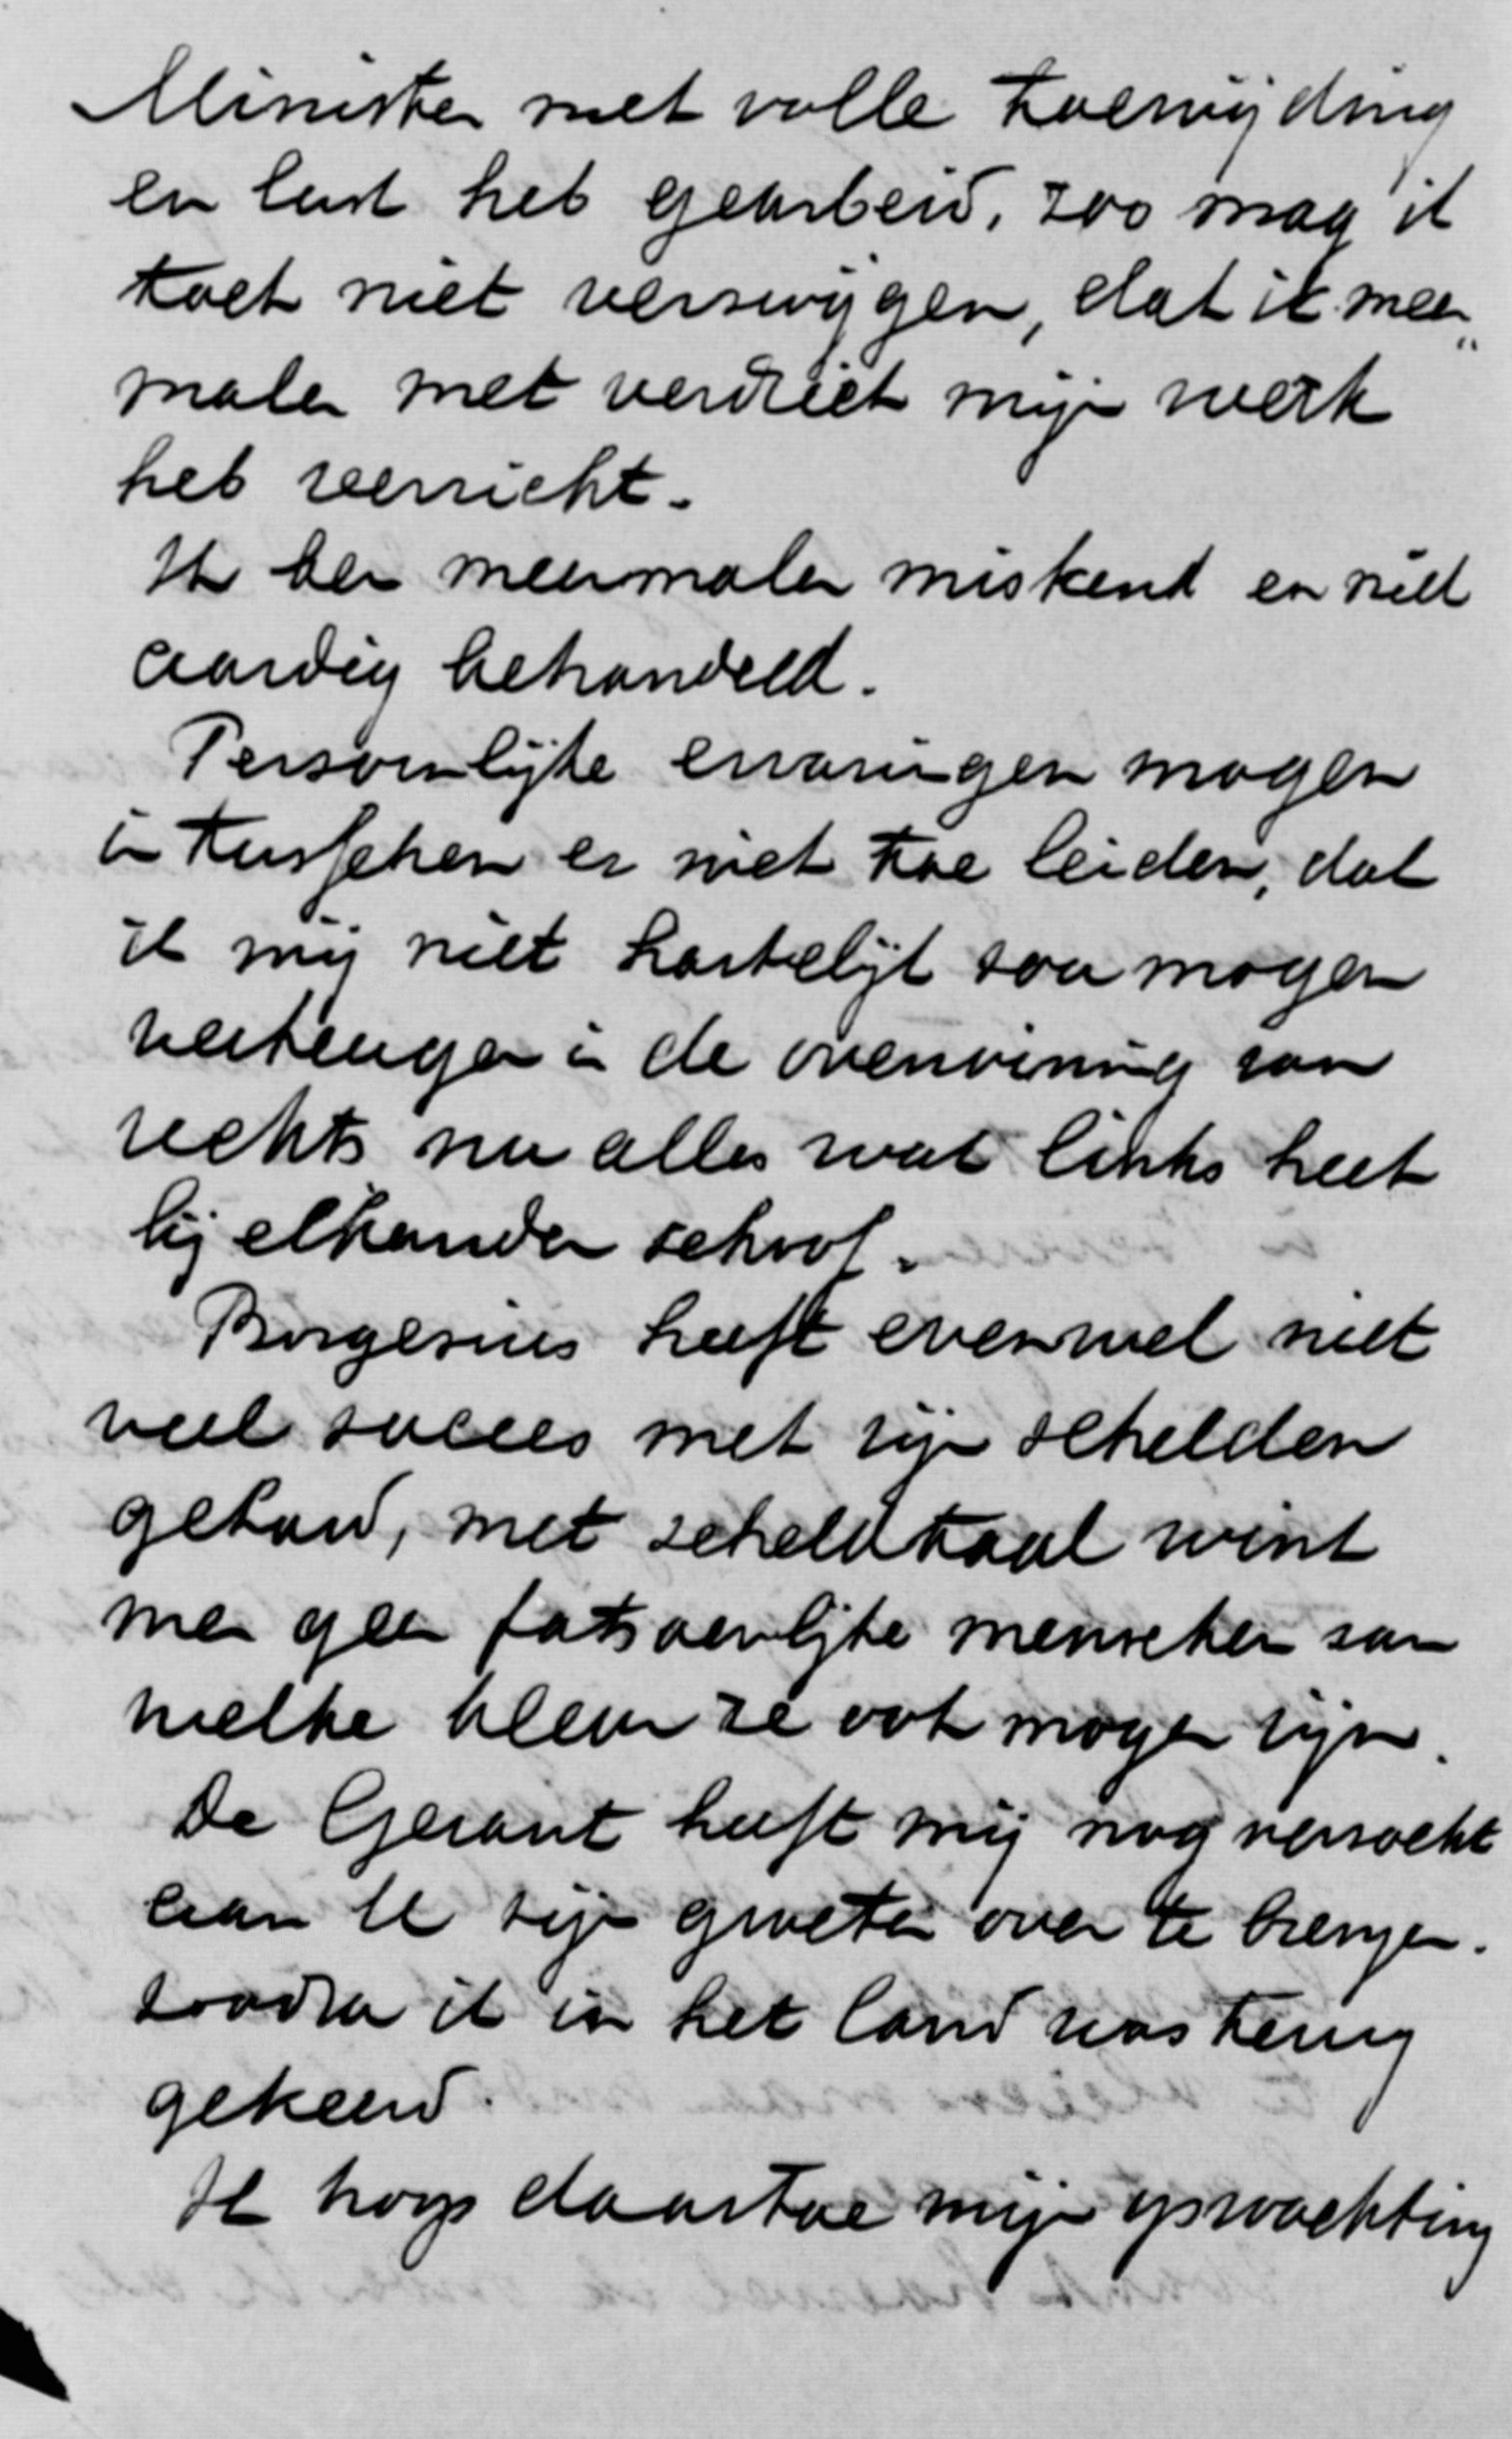 Minister met volle toewijding
en lust heb gearbeid, zoo mag ik
toch niet verzwijgen, dat ik meer„
malen met verdriet mijn werk
heb verricht.
Ik ben meermalen miskend en niet
aardig behandeld.
Persoonlijke ervaringen mogen
intusschen er niet toe leiden, dat
ik mij niet hartelijk zou mogen
verheugen in de overwinning van
rechts nu alles wat links heet
bij elkander school.
Borgesius heeft evenwel niet
veel succes met zijn schelden
gehad, met scheldtaal wint
men geen fatsoenlijke menschen van
welke kleur ze ook mogen zijn.
De Gerant heeft mij nog verzocht
aan U zijn groeten over te brengen.
zoodra ik in het land was terug
gekeerd.
Ik hoop daartoe mijn opwachting